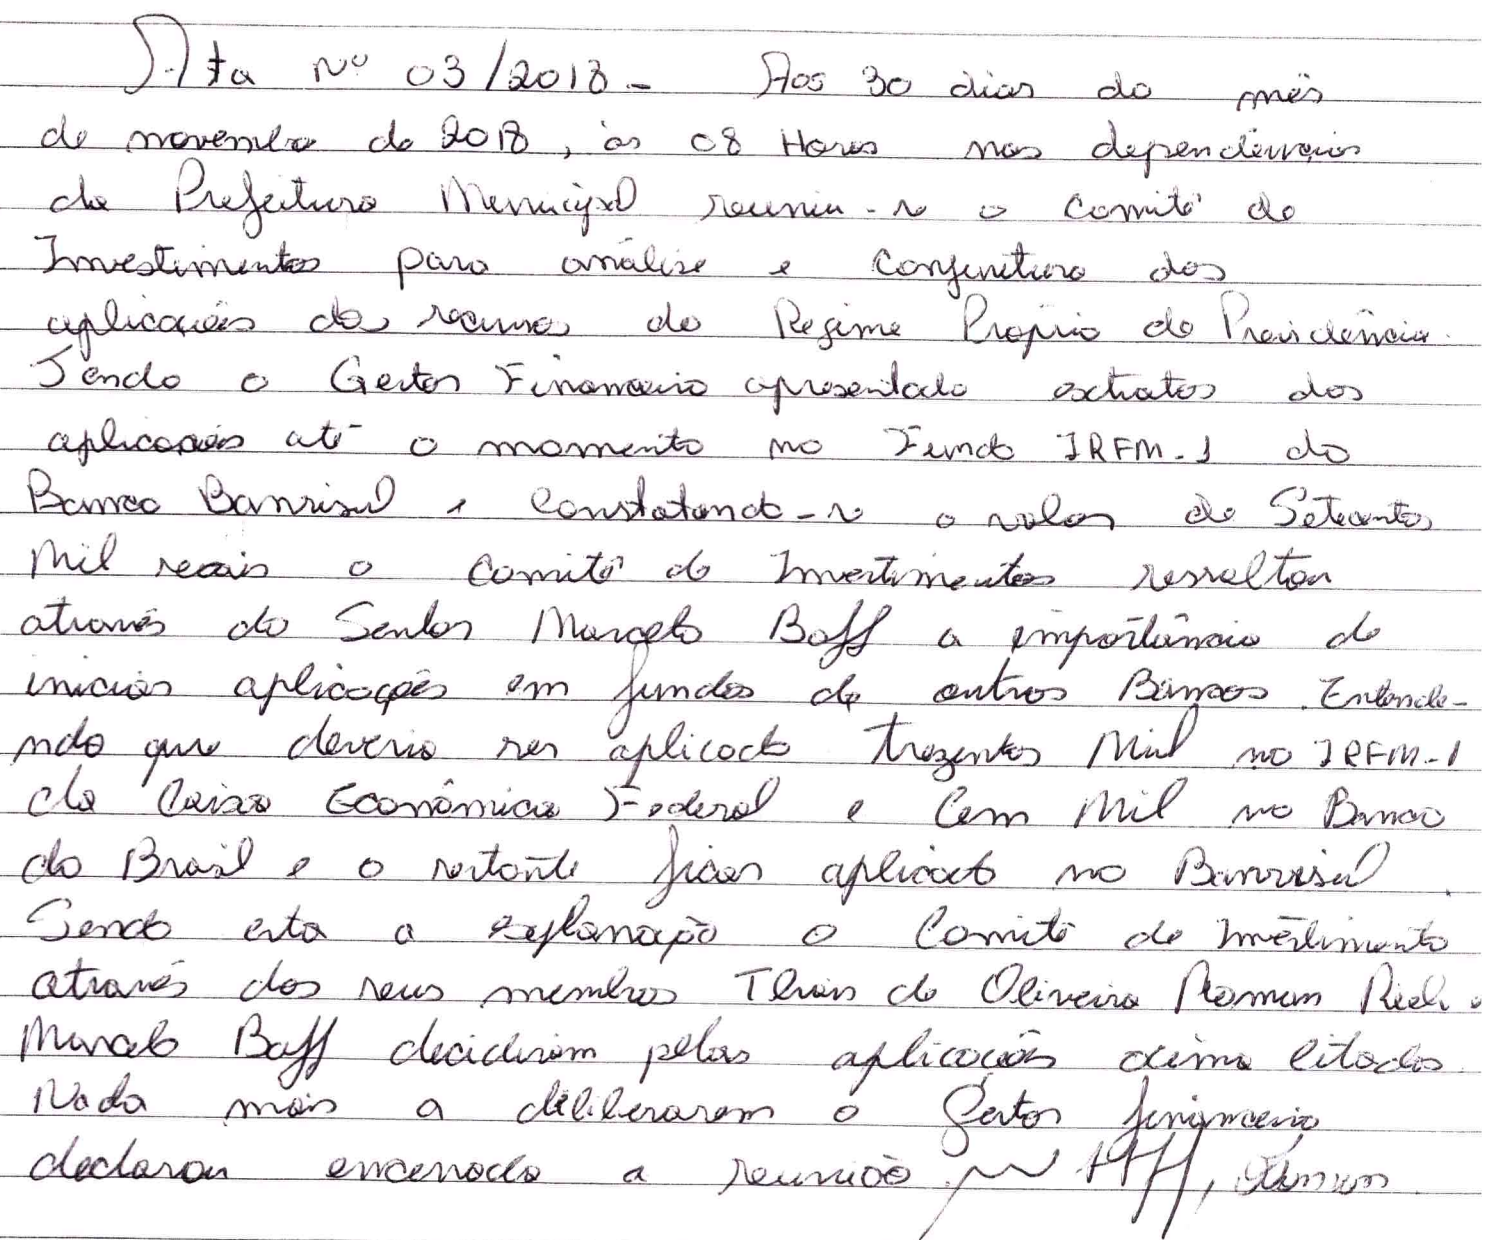 Ata Nº 03/2018 - Aos 30 dias do mês
de novembro de 2018, às 08 Horas nas dependências
da Prefeitura Municipal reuniu-se o Comitê de
Investimentos para análise e conjuntura das
aplicações de recursos do Regime Próprio de Previdência.
Sendo o Gestor Financeiro apresentado extratos das
aplicações até o momento no Fundo IRFM-1 do
Banco Banrisul e Constatando-se o valor de Setecentos
Mil reais o Comitê de Investimentos ressaltou
através do Senhor Marcelo Boff a importância de
iniciar aplicações em fundos de outros Bancos. Entende-
ndo que deveria ser aplicado trezentos Mil no IRFM-1
da Caixa Econômica Federal e Cem Mil no Banco
do Brasil e o restante ficar aplicado no Banrisul.
Sendo esta a explanação o Comitê de Investimento
através dos seus membros Thais de Oliveira Roman
Marcelo Boff decidiram pelas aplicações acima citadas.
Nada mais a deliberarem o Gestor financeiro
declarou encerrada a reunião.